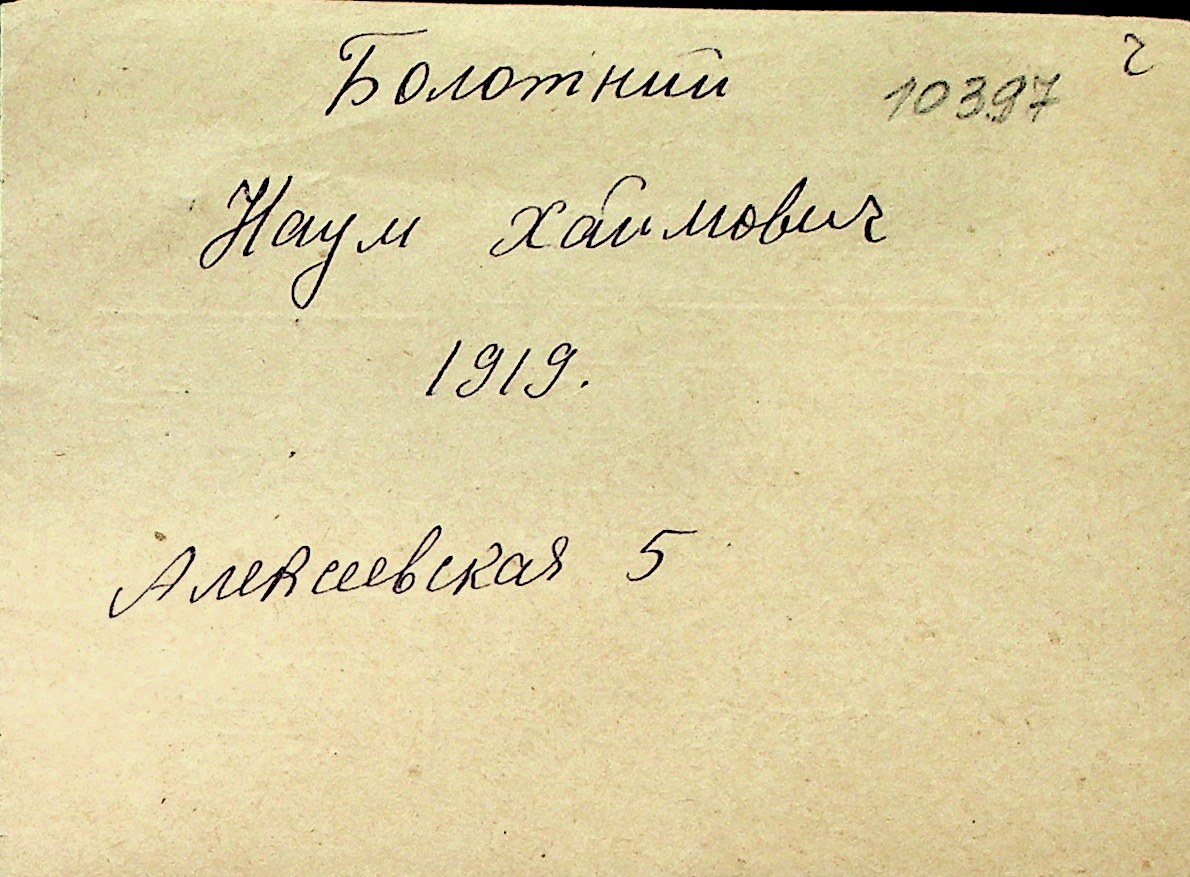 Болотний 10397 ч
Наум Хаимович
1919.
Алексеевская 5